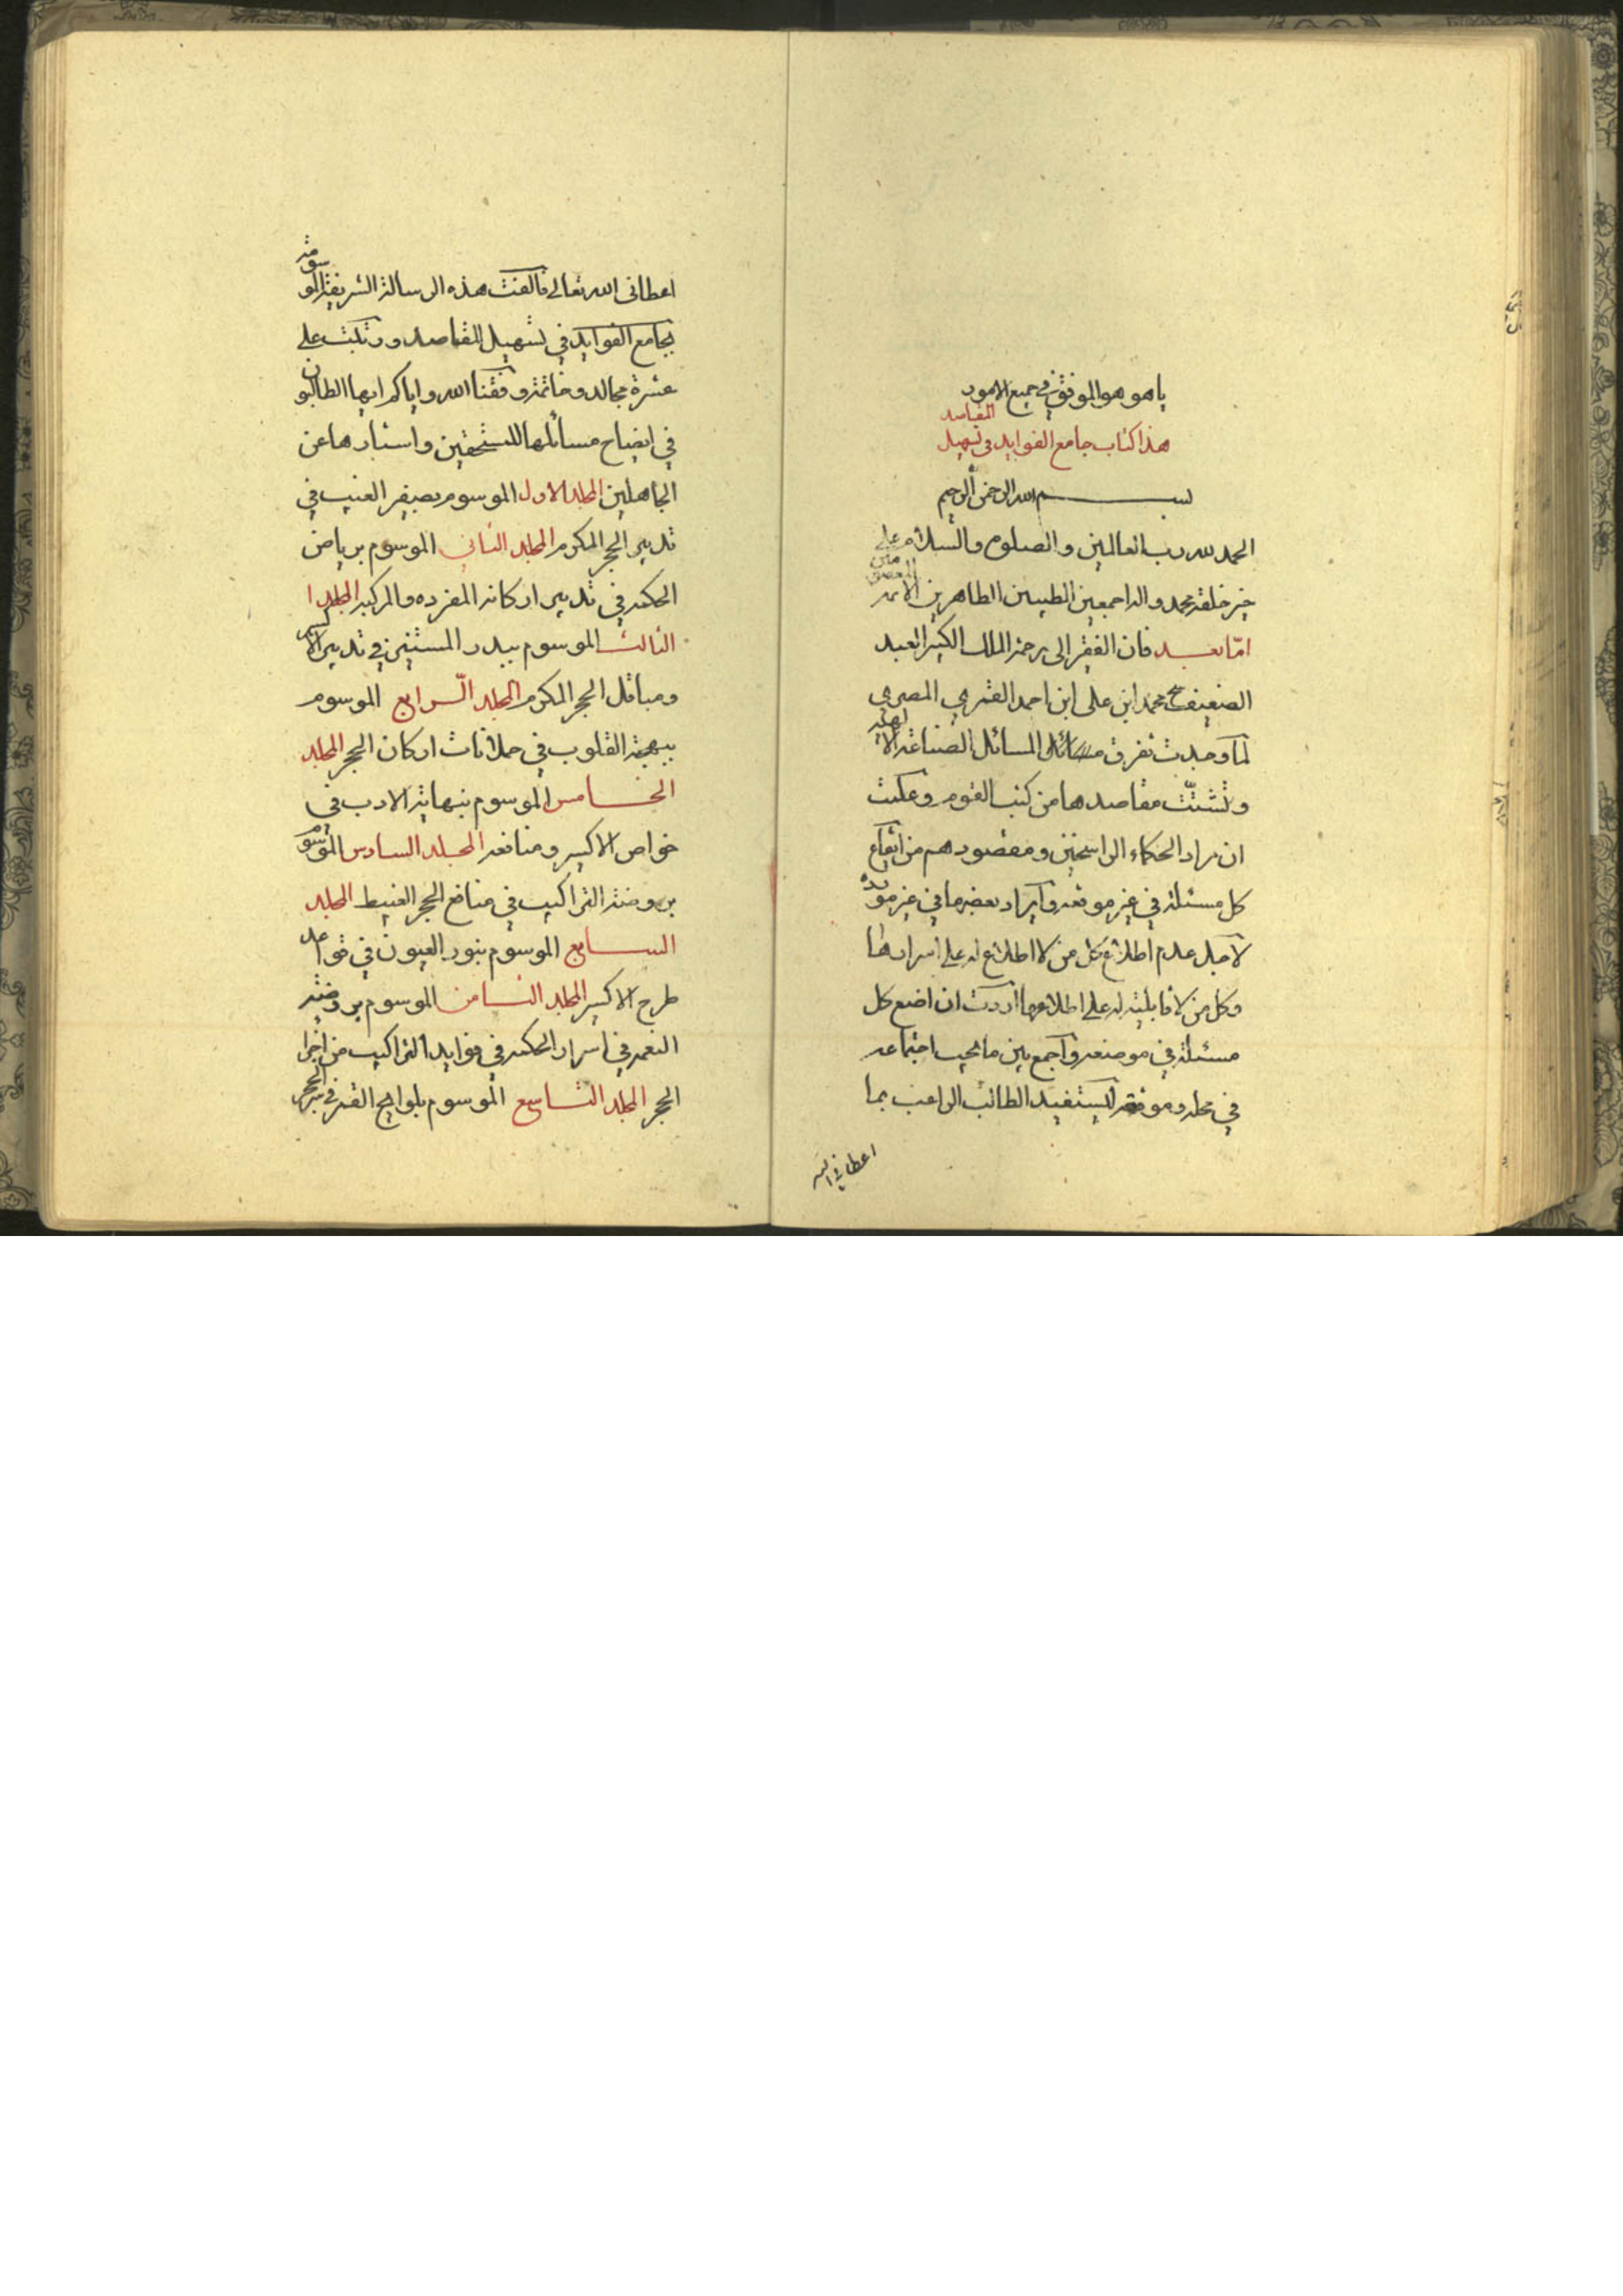 ياهو هو الموفق في جميع الامور
هذا كتاب جامع الفوايد في تسهيل المقاسد
بسم الله الرحمن الرحيم
الحمد لله رب العالمين والصلوة والسلام على
خير خلقه محمد واله اجمعين الطيبين الطاهرين الائمه
امّا بعد فان الفقير الى رحمة الملك الكبير العبد
الضعيف محمد ابن على ابن احمد المصري
لما وجدت تفرق مسائل المسائل الصناعة الالهية
وتشتّت مقاصدها من كتب القوم وعلمت
ان مراد الحكماء الراسخين ومقصودهم من ايقاع
كل مسئلة في غير موقعه وايراد بعضها في غير مورده
لاجل عدم اطلاع كل من لا اطلاع له على اسرارها
وكل من لا قابلية له على اطلاعها اردت ان اضع كل
مسئلة في موضعه واجمع بين ما يجب اجتماعه
في محله وموقعه ليستفيد الطالب الراغب بما
اعطاني الله
اعطانى الله تعالى فالفت هذه الرسالة الشريفة الموسومة
بجامع الفوايد في تسهيل المقاصد ورتبت على
عشرة مجالد وخاتمة وفقنا الله واياكم ايها الطالبون
في ايضاح مسائلها للمستحقين واستارها عن
الجاهلين المجلد الاول الموسوم بصيقر العنيب في
تدبير الحجر المكرم المجلد الثانى الموسوم برياض
الحكمه في تدبير اركانه المفرده والمركبه المجلد ا
الثالث الموسوم ببدر المستنير في تدبير الاكسير
المجلد الرّابع الموسوم
ببهجة القلوب في حملانات اركان الحجر المجلد
الخامس الموسوم بنهاية الادب في
خواص الاكسير ومنافعه المجلد السادس الموسوم
بروضة التراكيب في منافع الحجر الغبيط المجلد
السابع الموسوم بنور العيون في قواعد
طرح الاكسير المجلد الثامن الموسوم بروضة
في اسرار الحكمه في فوايد التراكيب من اجزا
الحجر المجلد التاسع الموسوم بلوايح القمر في سر الحجر